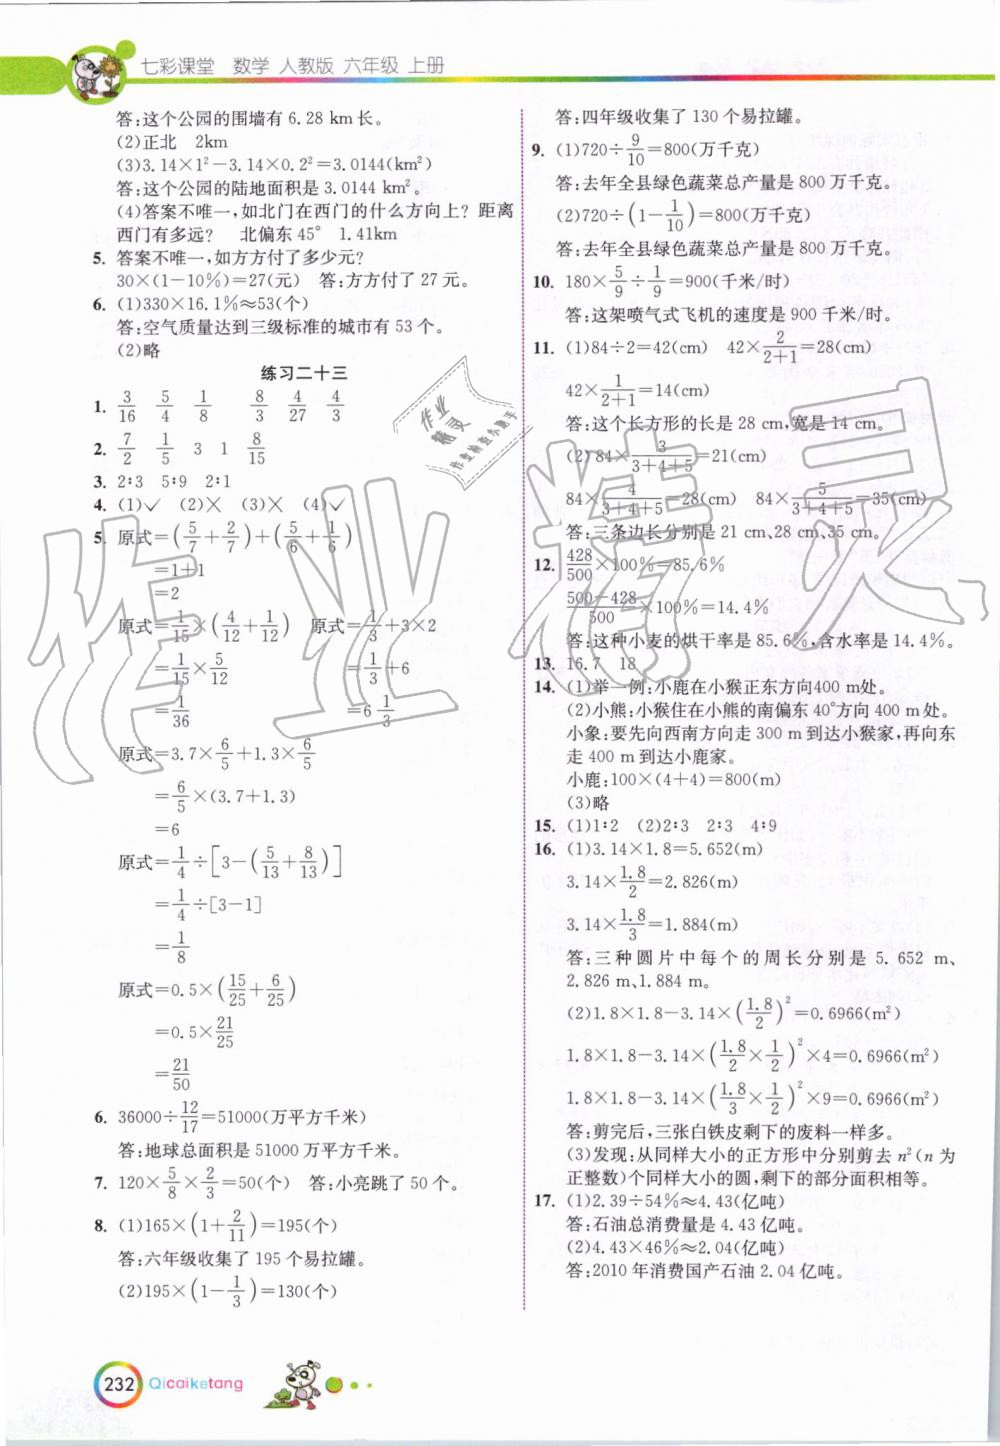 七彩课堂 数学 人教版 六年级 上册
答:这个公园的围墙有 6.28 km长。
(2)正北 2km
(3)3.14×1²-3.14×0.2²=3.0144(km²)
答:这个公园的陆地面积是 3.0144 km²。
(4)答案不唯一,如北门在西门的什么方向上? 距离
西门有多远? 北偏东45° 1.41km
5. 答案不唯一,如方方付了多少元?
30×(1-10%)=27(元) 答:方方付了 27 元。
6. (1)330×16.1%≈53(个)
答:空气质量达到三级标准的城市有 53 个。
(2)略
练习二十三
1. 3/16 5/4 1/8 8/3 4/27 4/3
2. 7/2 1/5 3 1 8/15
3. 2∶3 5∶9 2∶1
4. (1)✓ (2)× (3)× (4)✓
5. 原式=(5/7+2/7)+(5/6+1/6)
=1+1
=2
原式=1/15×(4/12+1/12) 原式=1/3+3×2
=1/15×5/12 =1/3+6
=1/36 =6 1/3
原式=3.7×6/5+1.3×6/5
=6/5×(3.7+1.3)
=6
原式=1/4÷[3-(5/13+8/13)]
=1/4÷[3-1]
=1/8
原式=0.5×(15/25+6/25)
=0.5×21/25
=21/50
6. 36000÷12/17=51000(万平方千米)
答:地球总面积是 51000 万平方千米。
7. 120×5/8×2/3=50(个) 答:小亮跳了 50 个。
8. (1)165×(1+2/11)=195(个)
答:六年级收集了 195 个易拉罐。
(2)195×(1-1/3)=130(个)
答:四年级收集了 130 个易拉罐。
9. (1)720÷9/10=800(万千克)
答:去年全县绿色蔬菜总产量是 800 万千克。
(2)720÷(1-1/10)=800(万千克)
答:去年全县绿色蔬菜总产量是 800 万千克。
10. 180×5/9÷1/9=900(千米/时)
答:这架喷气式飞机的速度是 900 千米/时。
11. (1)84÷2=42(cm) 42×2/(2+1)=28(cm)
42×1/(2+1)=14(cm)
答:这个长方形的长是 28 cm,宽是 14 cm。
(2)84×3/(3+4+5)=21(cm)
84×4/(3+4+5)=28(cm) 84×5/(3+4+5)=35(cm)
答:三条边长分别是 21 cm、28 cm、35 cm。
12. 428/500×100%=85.6%
(500-428)/500×100%=14.4%
答:这种小麦的烘干率是 85.6%,含水率是 14.4%。
13. 16.7 18
14. (1)举一例:小鹿在小猴正东方向400 m处。
(2)小熊:小猴住在小熊的南偏东 40°方向 400 m 处。
小象:要先向西南方向走 300 m 到达小猴家,再向东
走 400 m 到达小鹿家。
小鹿:100×(4+4)=800(m)
(3)略
15. (1)1∶2 (2)2∶3 2∶3 4∶9
16. (1)3.14×1.8=5.652(m)
3.14×1.8/2=2.826(m)
3.14×1.8/3=1.884(m)
答:三种圆片中每个的周长分别是 5.652 m、
2.826 m、1.884 m。
(2)1.8×1.8-3.14×(1.8/2)²=0.6966(m²)
1.8×1.8-3.14×(1.8/2×1/2)²×4=0.6966(m²)
1.8×1.8-3.14×(1.8/3×1/2)²×9=0.6966(m²)
答:剪完后,三张白铁皮剩下的废料一样多。
(3)发现:从同样大小的正方形中分别剪去 n²(n 为
正整数)个同样大小的圆,剩下的部分面积相等。
17. (1)2.39÷54%≈4.43(亿吨)
答:石油总消费量是 4.43 亿吨。
(2)4.43×46%≈2.04(亿吨)
答:2010 年消费国产石油 2.04 亿吨。
作业精灵
作业精灵
作业检查小助手
232 Qicaiketang